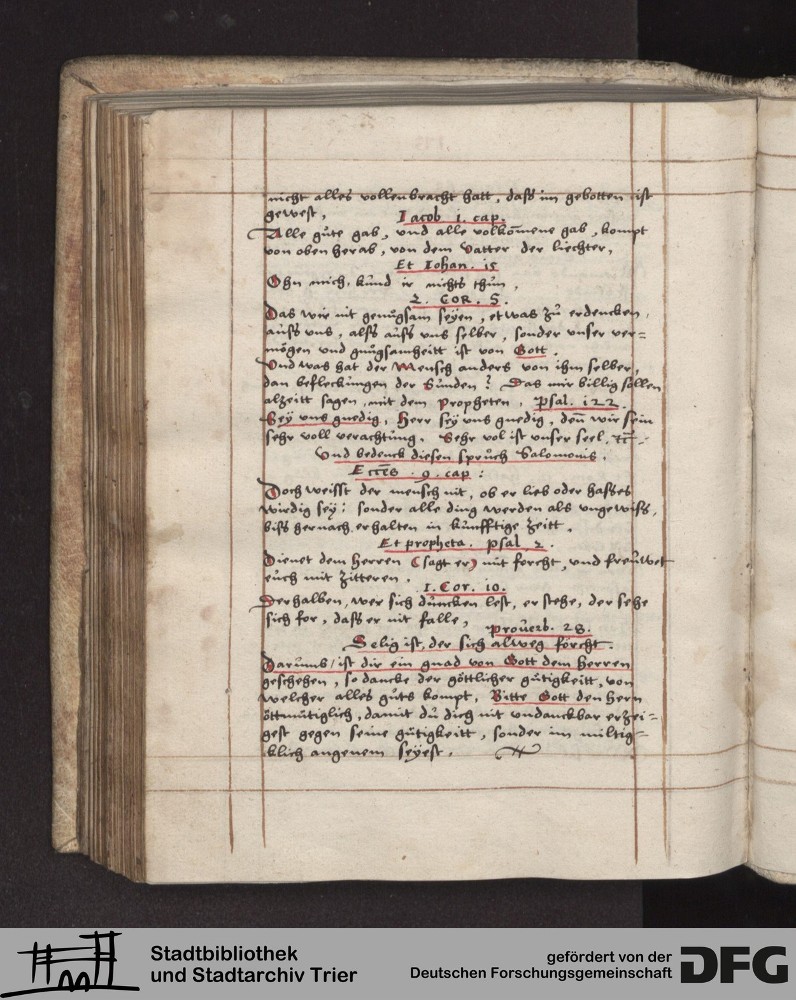 nicht alles vollenbracht hatt, dass im gebotten ist
gewest,
Iacob i. cap.
Alle gůte gab, und alle volkom̄ene gab, kompt
von oben herab, von dem Vatter der liechter,
Et Iohan. is
Ohn mich, kůnd ir nichts thůn,
2. COR. S.
Das wir nit genůgsam seyen, etwas zů erdencken,
aůss uns, alss aůss uns selber, sonder unser ver=
mögen und gnůgsamheitt ist von Gott.
Und was hat der Mensch anders von ihm selber,
dan befleckůngen der Sůnden? Das wir billig sollen
alzeitt sagen, mit dem Propheten, Psal. i22.
Sey uns gnedig, Herr sey uns gnedig, den̄ wir sein
sehr voll verachtůng. Sehr vol ist unser seel,
Und bedenck diesen sprůch Salomonis.
Eccles. 9. cap:
Doch weisst der mensch nit, ob er lieb oder hasses
wirdig sey: sonder alle ding werden als ungewiss,
biss hernach erhalten in kůnfftige zeitt.
Et propheta. Psal 2.
Dienet dem Herren (sagt er) mit forcht, und freůwet
eůch mit zitteren.
I. Cor. io.
Derhalben, wer sich důncken lest, er stehe, der sehe
sich for, dass er nit falle,
Proůerb. 28.
Selig ist, der sich alweg förcht.
Darumb, ist dir ein gnad von Gott dem Herren
geschehen, so dancke der göttlicher gůtigkeitt, von
welcher alles gůts kompt, Bitte Gott den Hern
öttmůtiglich, damit dů dich nit undanckbar erzei=
gest gegen seine gůtigkeitt, sonder im miltig=
klich angenem seyest.
Stadtbibliothek
und Stadtarchiv Trier
gefördert von der
Deutschen Forschungsgemeinschaft
DFG